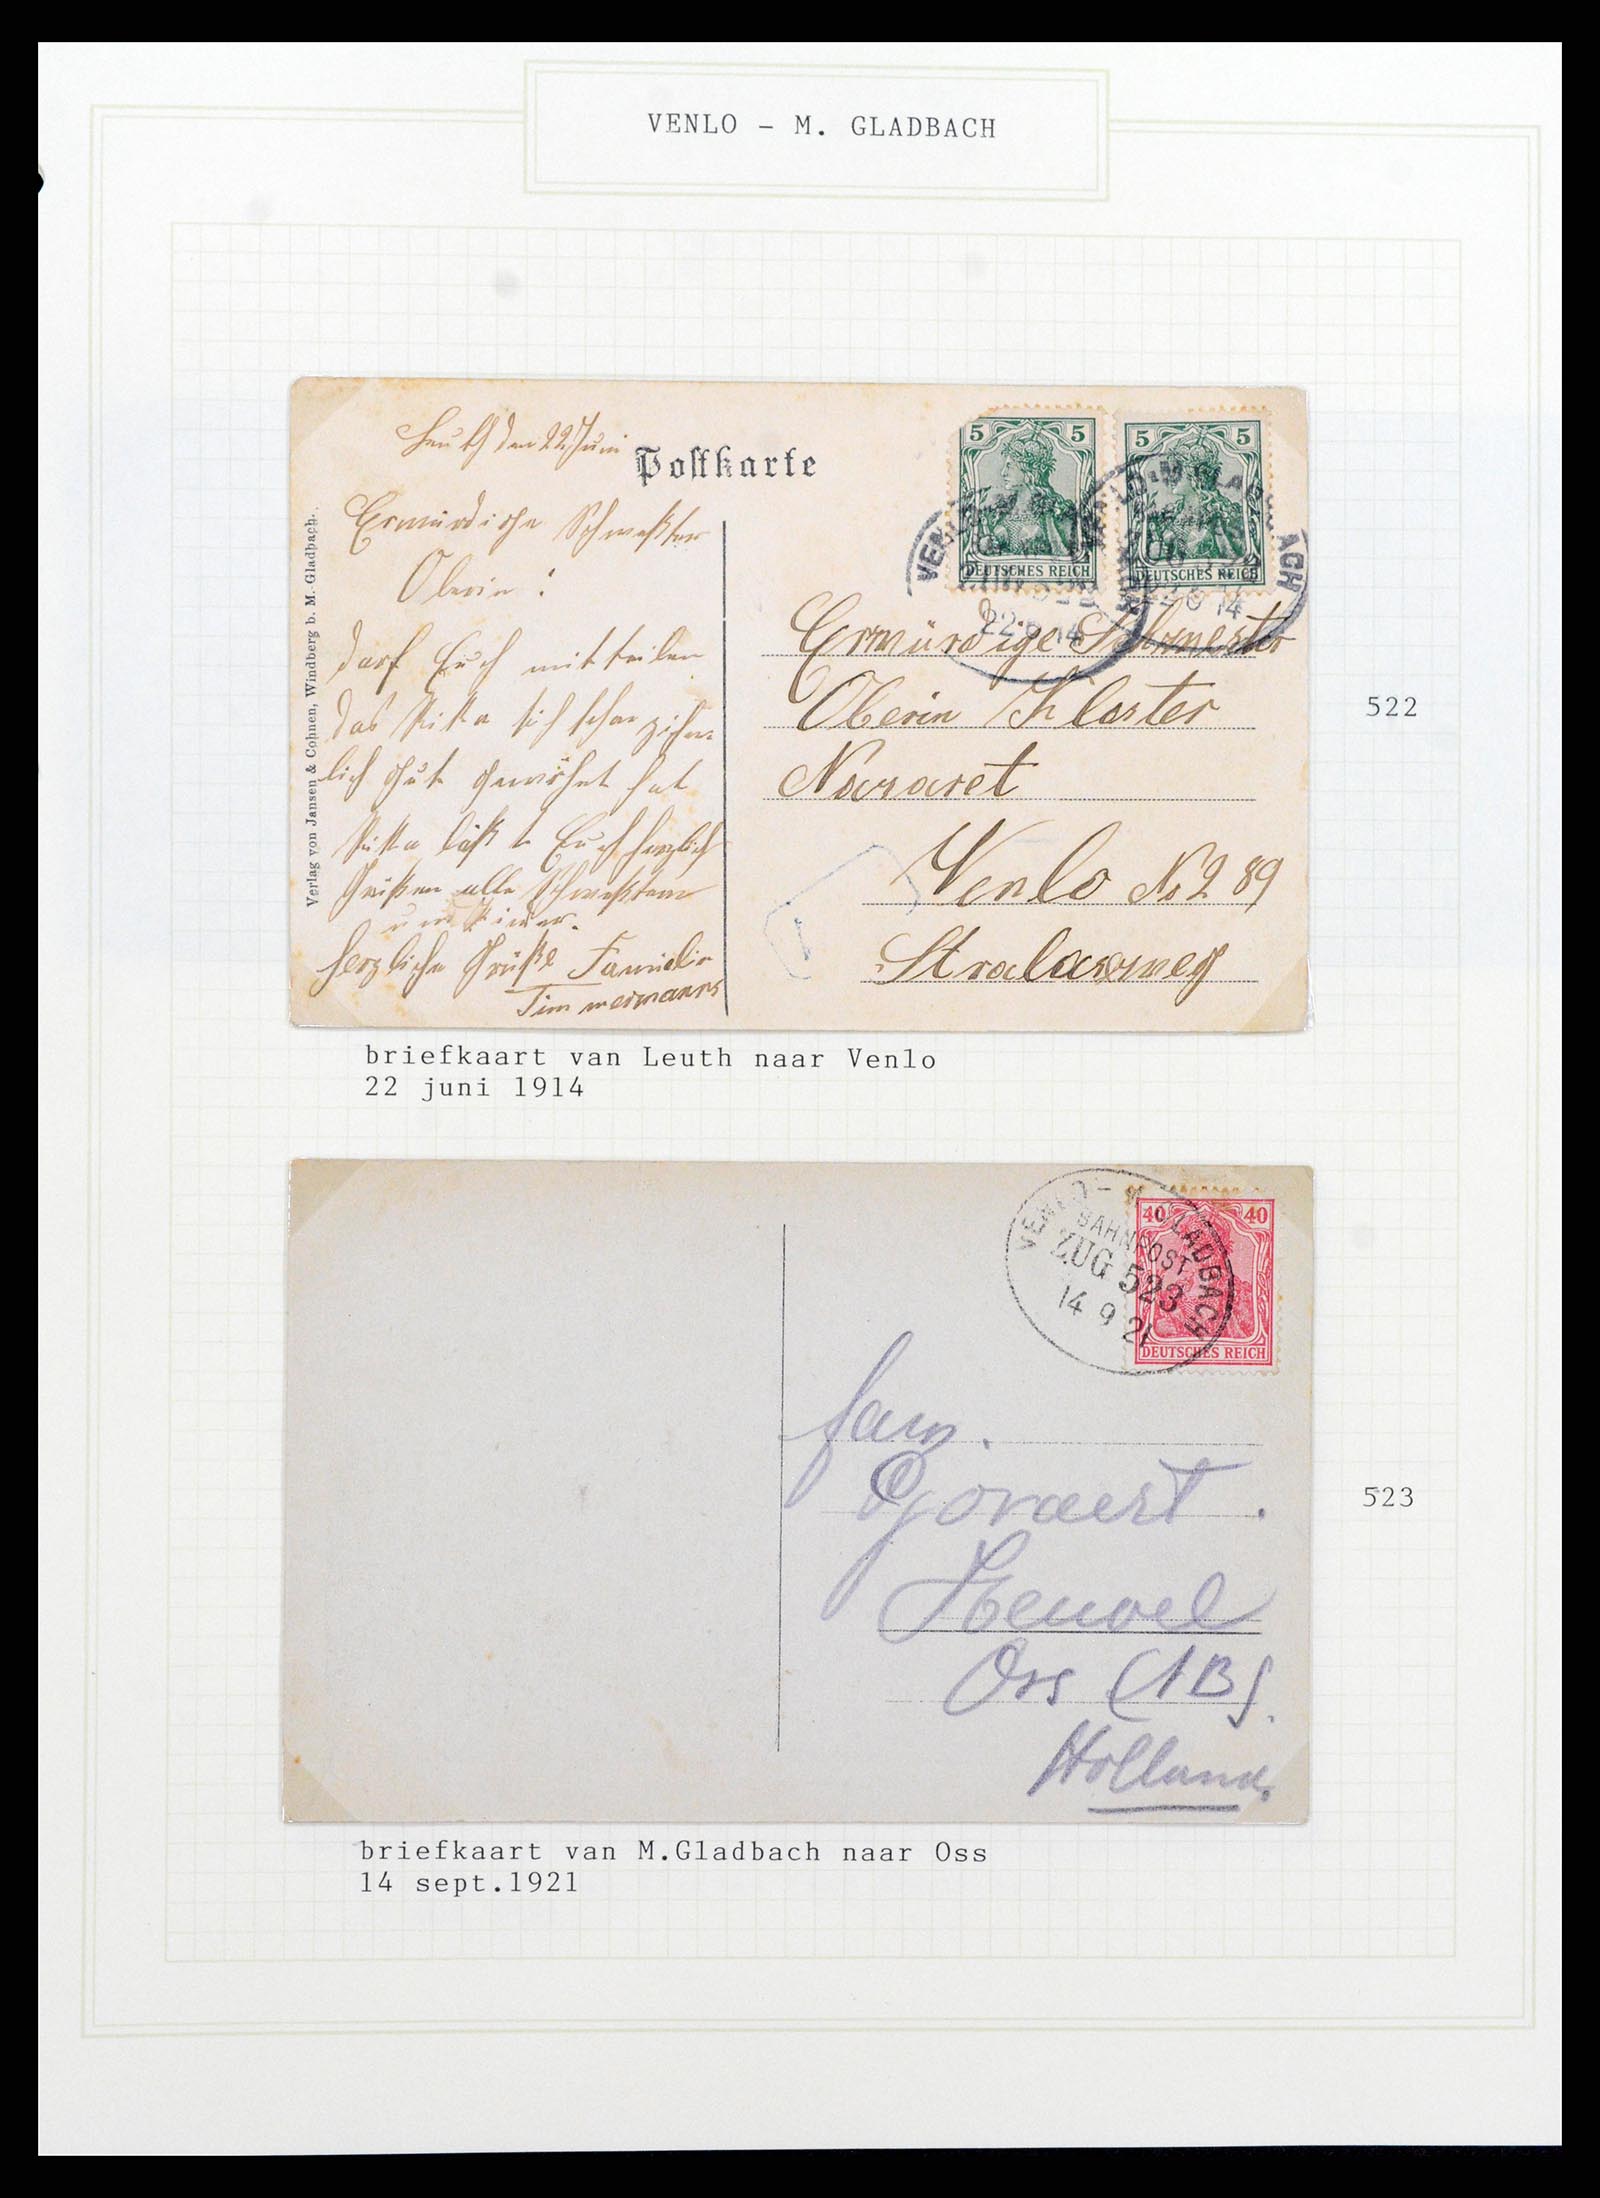 VENLO - M. GLADBACH
Leuth den 22 Juni
Postkarte
Verlag von Jansen & Cohnen, Windberg b. M. Gladbach.
Ermürdiche Schweßter
Oberin!
darf Euch mitteilen
das sich schon ziehm-
lich Gut gewöhnt hat
läßt Euch herzlich
Grüßen alle Schweßtern
herzliche Grüße Familie
Timmermanns
5 5
DEUTSCHES REICH
5 5
DEUTSCHES REICH
22 6 14
Ermürdige Schwester
Oberin Kloster
Nazaret
Venlo No 289
522
briefkaart van Leuth naar Venlo
22 juni 1914
VENLO - M. GLADBACH
BAHNPOST
ZUG 523
14 9 21
40 40
DEUTSCHES REICH
fam.
Govaert.
Heuvel
Oss (NB).
Holland.
523
briefkaart van M.Gladbach naar Oss
14 sept.1921